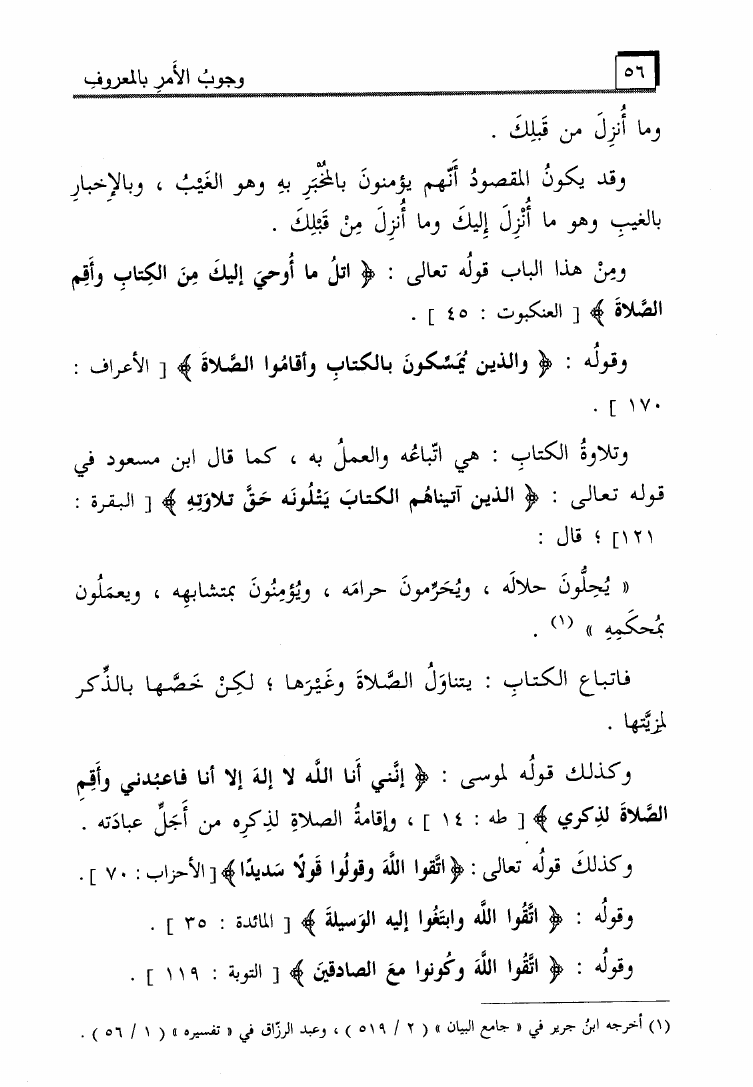 ٥٦
وجوبُ الأَمرِ بالمعروفِ
وما أُنزِلَ من قَبلِكَ .
وقد يكونُ المقصودُ أَنَّهم يؤمنونَ بالمُخْبَرِ بهِ وهو الغَيْبُ ، وبالإِخبارِ
بالغيبِ وهو ما أُنْزِلَ إِليكَ وما أُنزِلَ مِنْ قَبْلِكَ .
ومِنْ هذا الباب قولُه تعالى : ﴿ اتلُ ما أُوحيَ إليكَ مِنَ الكِتابِ وأَقِم
الصَّلاةَ ﴾ [ العنكبوت : ٤٥ ] .
وقولُه : ﴿ والذين يُمَسِّكونَ بالكتابِ وأقامُوا الصَّلاةَ ﴾ [ الأعراف :
١٧٠ ] .
وتلاوةُ الكتابِ : هي اتّباعُه والعملُ به ، كما قال ابن مسعود في
قوله تعالى : ﴿ الذين آتيناهُم الكتابَ يَتْلُونَه حَقَّ تلاوَتِهِ ﴾ [ البقرة :
١٢١] ؛ قال :
« يُحِلُّونَ حلالَه ، ويُحَرِّمونَ حرامَه ، ويُؤمِنُونَ بمتشابهِه ، ويعمَلُون
بمُحكَمِهِ » (١) .
فاتباع الكتابِ : يتناوَلُ الصَّلاةَ وغَيْرَها ؛ لكِنْ خَصَّها بالذِّكر
لمزِيَّتها .
وكذلك قولُه لموسى : ﴿ إنَّني أَنا اللَّه لا إلهَ إلا أنا فاعبُدني وأَقِمِ
الصَّلاةَ لذِكري ﴾ [ طه : ١٤ ] ، وإقامةُ الصلاةِ لذِكرِه من أَجَلِّ عبادَته .
وكذلكَ قولُه تعالى : ﴿ اتَّقوا اللَّهَ وقولُوا قَولًا سَديدًا ﴾ [ الأحزاب : ٧٠ ] .
وقولُه : ﴿ اتَّقُوا اللَّه وابتَغُوا إليه الوَسيلةَ ﴾ [ المائدة : ٣٥ ] .
وقولُه : ﴿ اتَّقُوا اللَّهَ وكُونوا معَ الصادقينَ ﴾ [ التوبة : ١١٩ ] .
(١) أخرجه ابنُ جرير في « جامع البيان » ( ٢ / ٥١٩ ) ، وعبد الرزّاق في « تفسيره » ( ١ / ٥٦ ) .